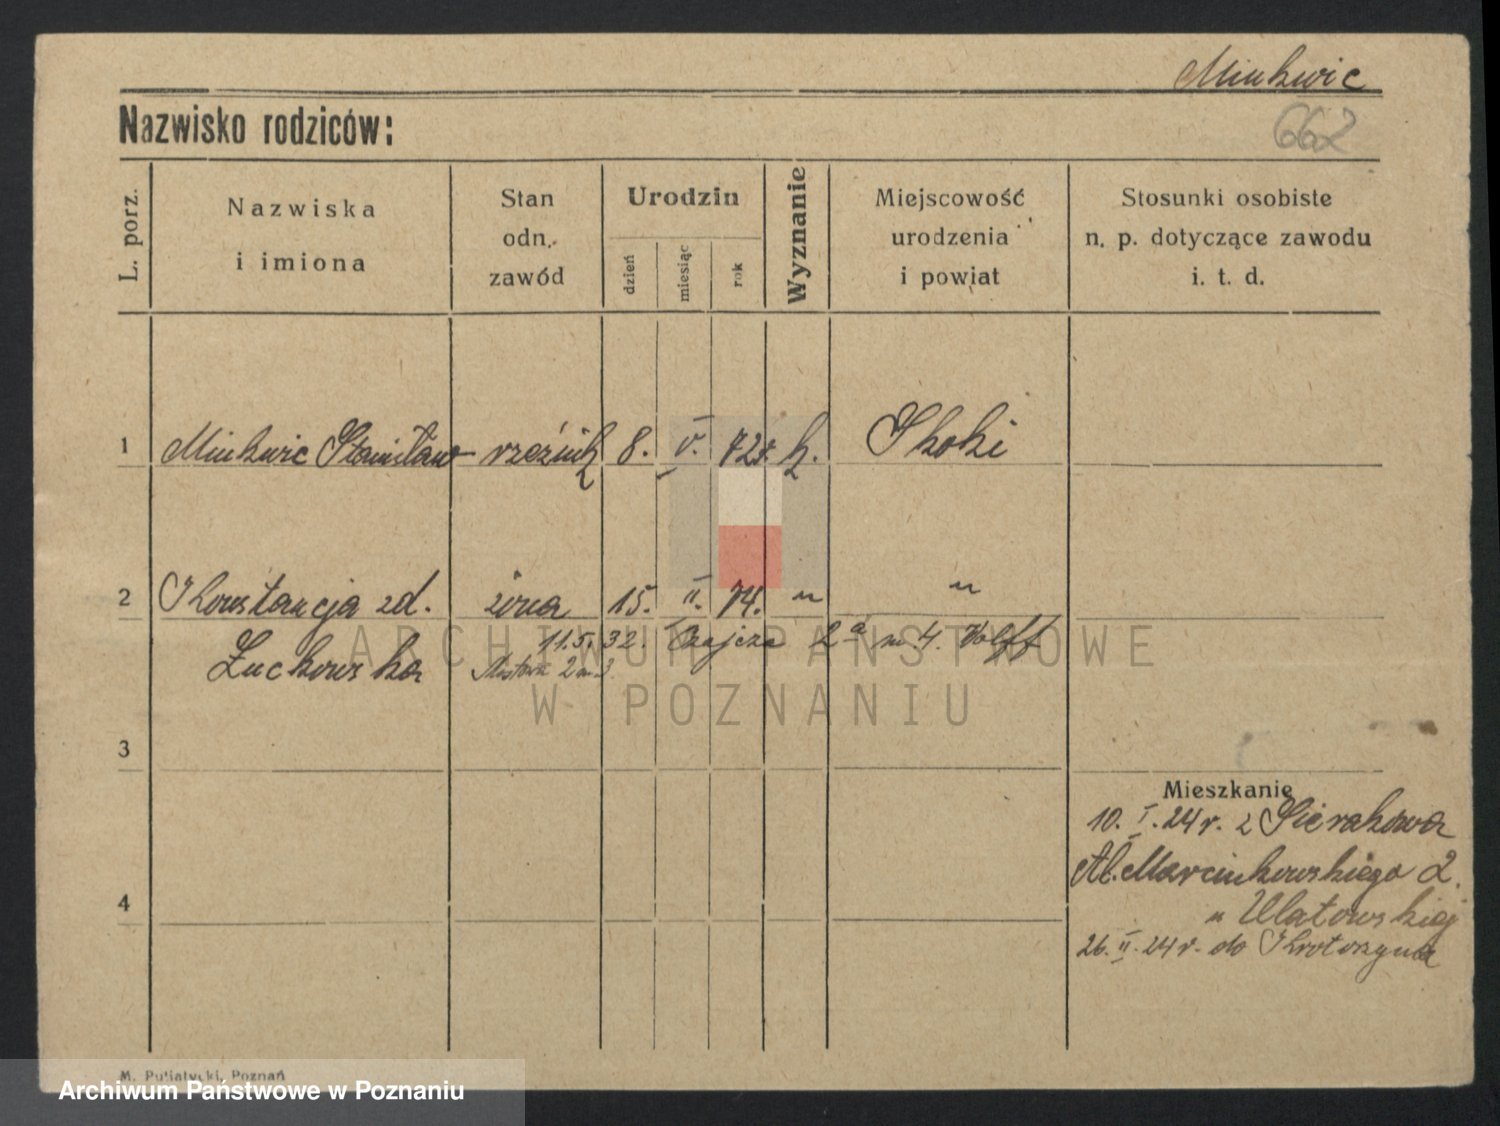 Minkwic
Nazwisko rodziców:
662
L. porz.
Nazwiska
i imiona
Stan
odn.
zawód
Urodzin
dzień
miesiąc
rok
Wyznanie
Miejscowość
urodzenia
i powiat
Stosunki osobiste
n. p. dotyczące zawodu
i. t. d.
1 Minkwic Stanisław rzeźnik 8. V. k. Skoki
2 Konstancja zd. żona 15. II. 74. " "
Żuchowska
11.5.32. m. 4. Wolff
2 m 3
ARCHIWUM PAŃSTWOWE
W POZNANIU
3
Mieszkanie
10. I. 24 r. z Sierakowa
Al. Marcinkowskiego 2.
u Ulatowskiej
26. II. 24 r. do Krotoszyna
4
M. Putiatycki, Poznań
Archiwum Państwowe w Poznaniu